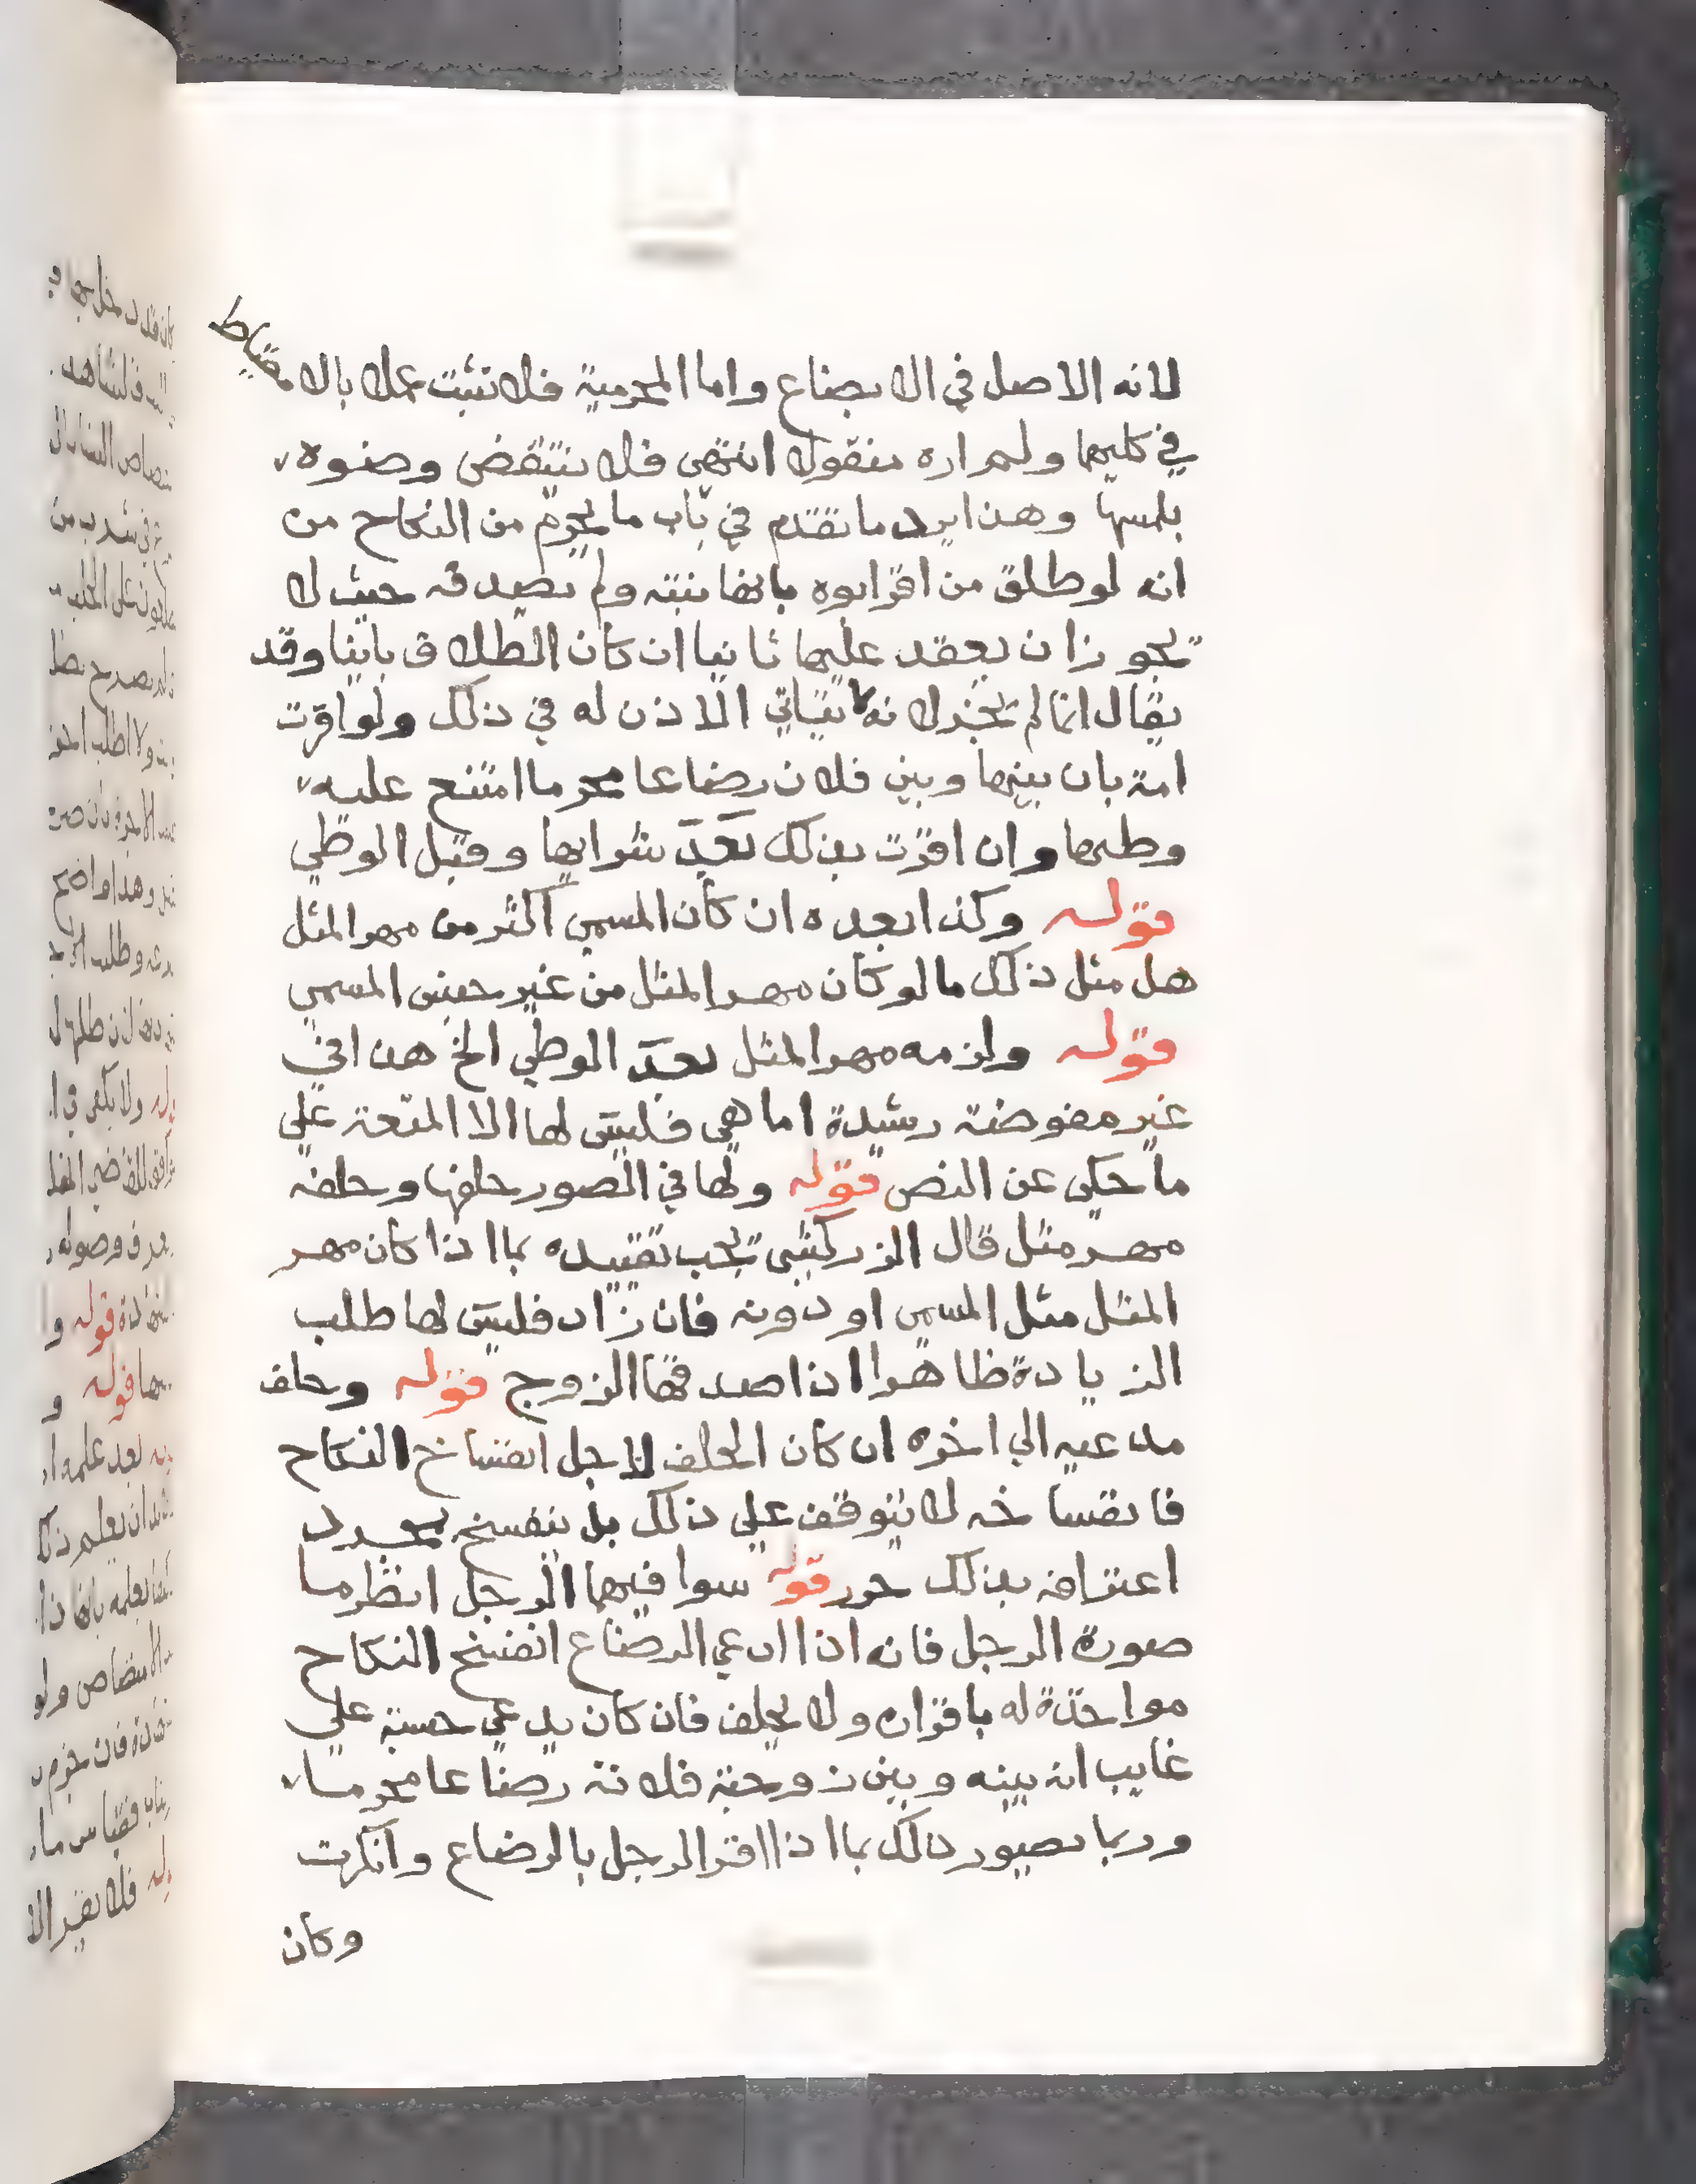 لانه الاصل في الابضاع واما المحرمية فلا تثبت عملا بالاحتياط
في كليهما ولم اره منقولا انتهى فلا ينتقض وضوه
بلمسها وهذا يرد ما تقدم في باب ما يحرم من النكاح من
انه لو طلق من اقر ابوه بانها بنته ولم يصدقه حيث لا
يجوز ان يعقد عليها ثانيا ان كان الطلاق باينا وقد
يقال انما لم يجز لانه لا يتاتي الاذن له في ذلك ولو اقرت
امة بان بينها وبين فلان رضاعا محرما امتنع عليه
وطيها وان اقرت بذلك بعد شرايها وقبل الوطي
قوله وكذا بعده ان كان المسمي اكثر من مهر المثل
هل مثل ذلك ما لو كان مهر المثل من غير جنس المسمي
قوله ولزمه مهر المثل بعد الوطي الخ هذا في
غير مفوضة رشيدة اما هي فليس لها الا المتعة علي
ما حكى عن النص قوله ولها في الصور حلفها وحلفه
مهر مثل قال الزركشي يجب تقييده بما اذا كان مهر
المثل مثل المسمي او دونه فان زاد فليس لها طلب
الزيادة ظاهرا اذا صدقها الزوج قوله وحلف
مدعيه الي اخره ان كان الحلف لاجل انفساخ النكاح
فانفساخه لا يتوقف علي ذلك بل ينفسخ بمجرد
اعترافه بذلك حرر قوله سوا فيهما الرجل انظر ما
صورة الرجل فانه اذا ادعي الرضاع انفسخ النكاح
مواخذة له باقراره ولا يحلف فان كان يدعي حسبة علي
غايب انه بينه وبين زوجته فلانة رضاعا محرما
وربما يصور ذلك بما اذا اقر الرجل بالرضاع وانكرت
وكان